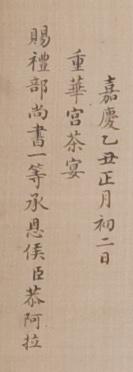 嘉慶乙丑正月初二日
重華宮茶宴
賜禮部尚書一等承恩侯臣恭阿拉